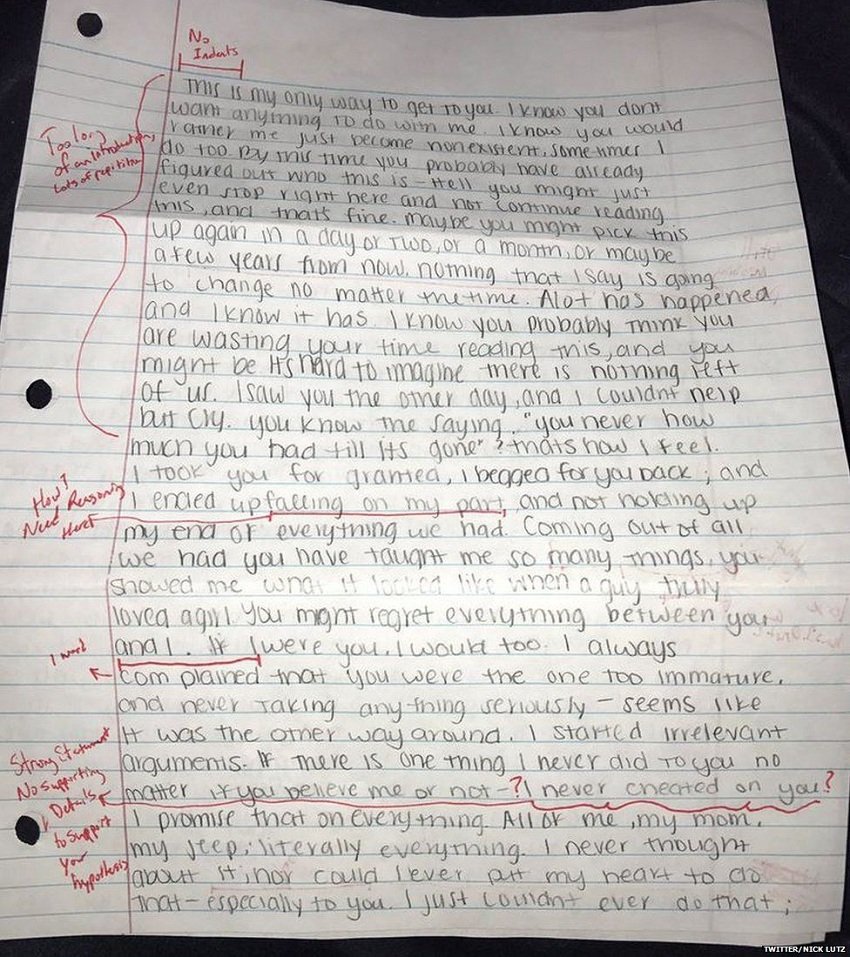 No
Indents
This is my only way to get to you. I know you dont
want anything to do with me. I know you would
rather me just become nonexistent, sometimes I
do too By this time you probably have already
figured out who this is - Hell you might just
even stop right here and not continue reading
this, and thats fine. maybe you might pick this
up again in a day or two, or a month, or maybe
a few years from now. nothing that I say is going
to change no matter the time. Alot has happened,
and I know it has. I know you probably think you
are wasting your time reading this, and you
might be Its hard to imagine there is nothing left
of us. I saw you the other day, and I couldnt help
but cry. you know the saying, "you never how
much you had till its gone"? thats how I feel.
I took you for granted, I begged for you back ; and
I ended up falling on my part, and not holding up
my end of everything we had. Coming out of all
we had you have taught me so many things, you
showed me what it looked like when a guy truly
loved a girl. You might regret everything between you
and I. If I were you, I would too. I always
complained that you were the one too immature,
and never taking anything seriously - seems like
it was the other way around. I started irrelevant
arguments. If there is one thing I never did to you no
matter if you believe me or not -? I never cheated on you?
I promise that on everything. All of me, my mom,
my jeep, literally everything. I never thought
about it, nor could I ever put my heart to do
that - especially to you. I just couldnt ever do that ;
Too long
of an introduction,
Lots of repitition
How?
Need Reasoning
Here!
1 word
Strong Statement
No supporting
Details
to support
your
hypothesis
TWITTER/NICK LUTZ